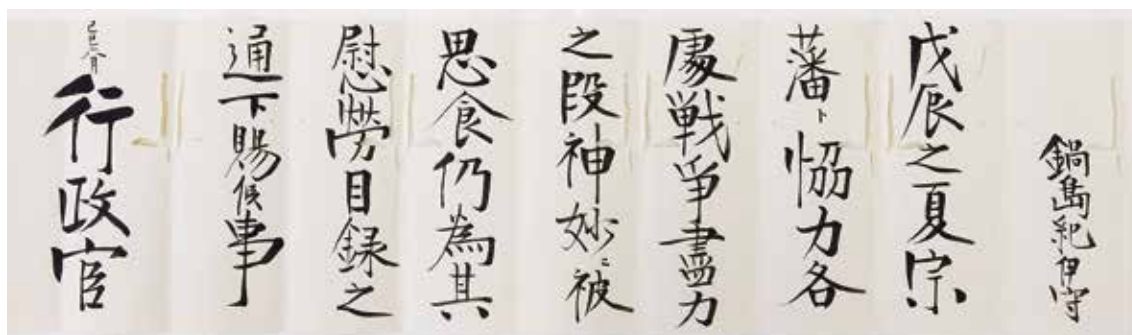 鍋島紀伊守
戊辰之夏宗
藩ト恊力各
處戦争盡力
之段神妙ニ被
思食仍為其
慰労目録之
通下賜候事
行政官